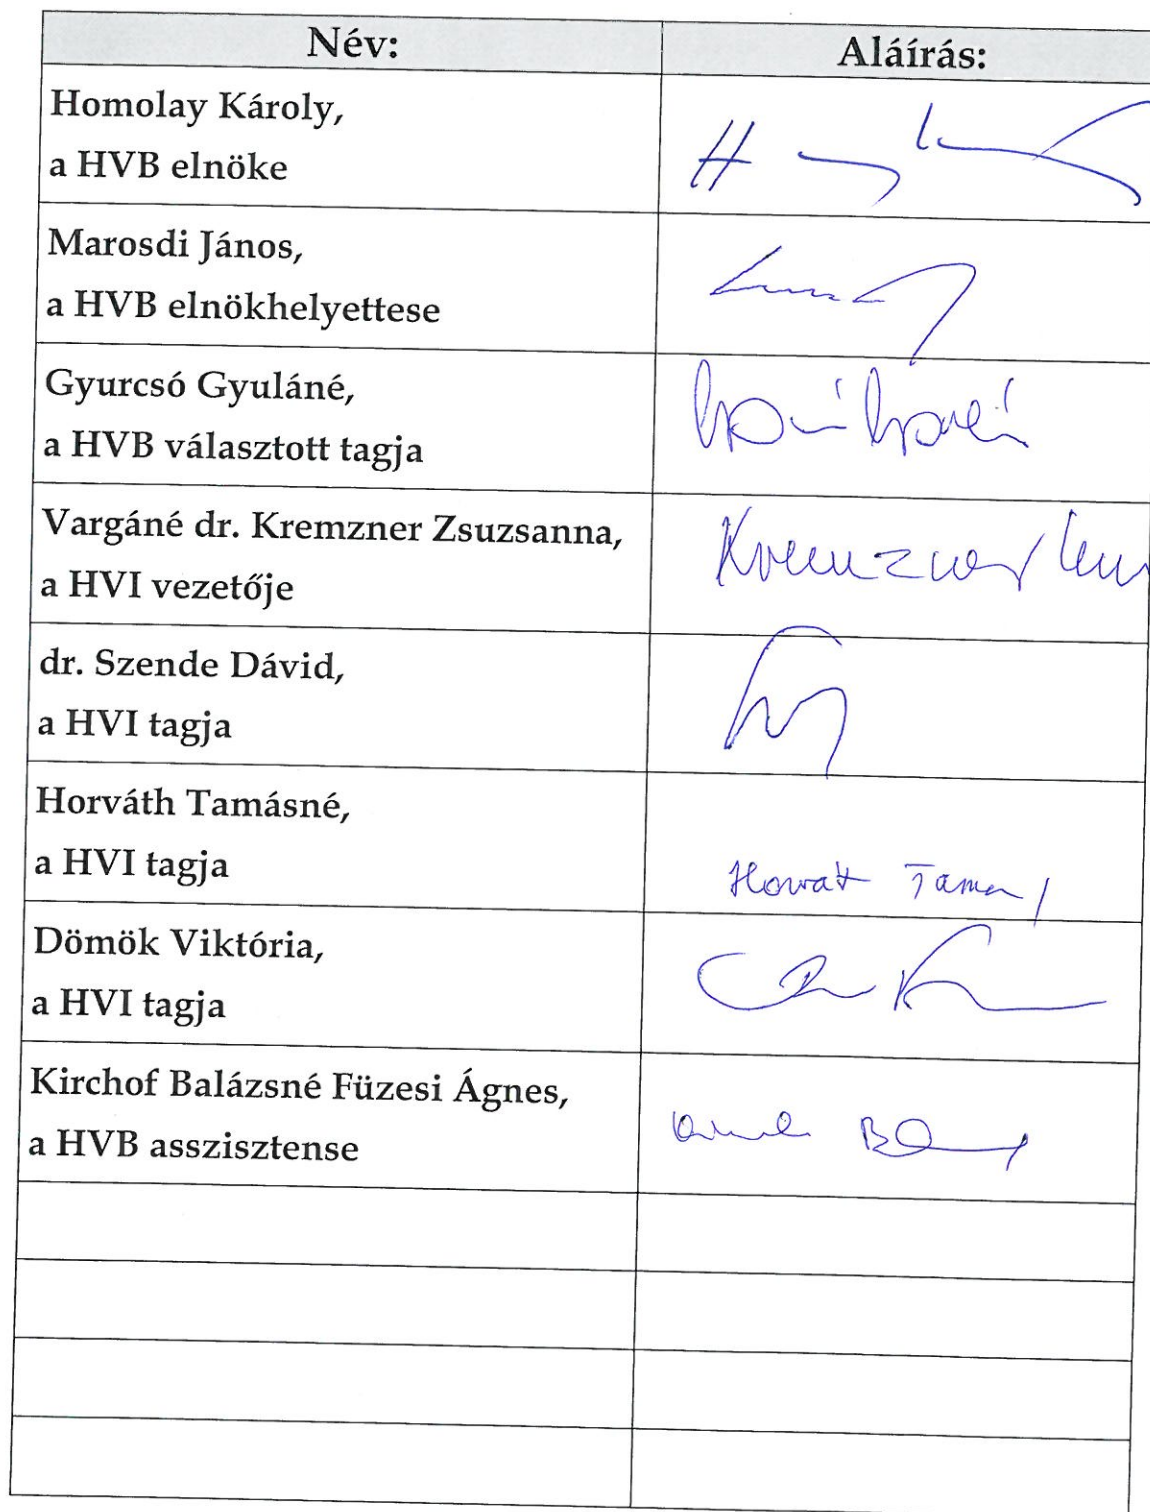 Név: Aláírás:
Homolay Károly,
a HVB elnöke
Marosdi János,
a HVB elnökhelyettese
Gyurcsó Gyuláné,
a HVB választott tagja
Vargáné dr. Kremzner Zsuzsanna,
a HVI vezetője
Kremzner
dr. Szende Dávid,
a HVI tagja
Horváth Tamásné,
a HVI tagja
Dömök Viktória,
a HVI tagja
Kirchof Balázsné Füzesi Ágnes,
a HVB asszisztense